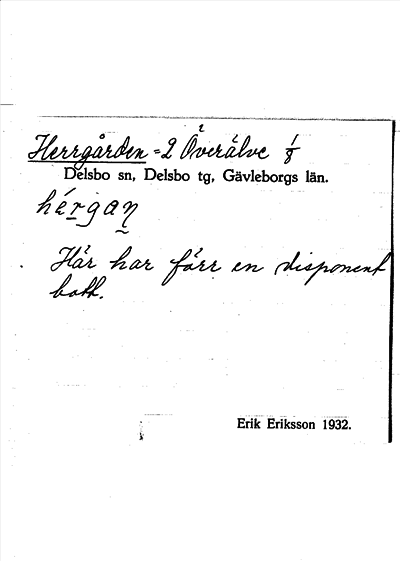 Herrgården = 2 Överälve 1/8
Delsbo sn, Delsbo tg, Gävleborgs län.
hérgaṇ
Här har förr en disponent
bott.
Erik Eriksson 1932.